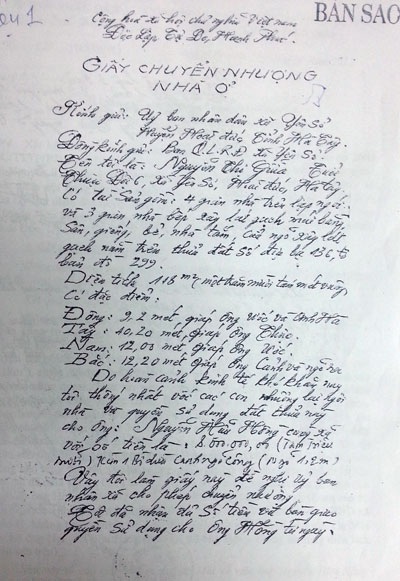 BẢN SAO
Cộng hòa xã hội chủ nghĩa Việt nam
Độc Lập Tự Do, Hạnh Phúc.
GIẤY CHUYỂN NHƯỢNG
NHÀ Ở
Kính gửi: Uỷ ban nhân dân xã Yên Sở
Huyện Hoài đức Tỉnh Hà Tây
Đồng kính gửi: Ban Q.L.R.Đ xã Yên Sở
Tên tôi là: Nguyễn Thị Giua Tuổi
Thuộc Đội 6, Xã Yên Sở, Hoài đức, Hà tây
Có tài sản gồm: 4 gian nhà trên lợp ngói
và 3 gian nhà bếp xây lát gạch mái bằng
Sân, giếng, bể, nhà tắm, Cổng ngõ xây lát
gạch nằm trên thửa đất Số 136, tờ
bản đồ 299.
Diện tích 118 m² một trăm mười tám mét vuông
Có đặc điểm:
Đông: 9,2 mét, giáp Ông Ước và Anh Hà
Tây: 10,20 mét, giáp Ông Thức.
Nam: 12,03 mét giáp Ông Ước.
Bắc: 12,20 mét giáp Ông Canh và ngõ
Do hoàn cảnh kinh tế khó khăn nay
tôi thống nhất với các con nhượng lại ngôi
nhà và quyền sử dụng đất thửa này
cho ông: Nguyễn Hữu Hồng cùng xã
với số tiền là: 8.000.000,đ (Tám Triệu
Vậy tôi làm giấy này đề nghị Uỷ ban
nhân xã cho phép chuyển nhượng.
Tôi đã nhận đủ Số tiền và bàn giao
quyền Sử dụng cho Ông Hồng từ ngày.